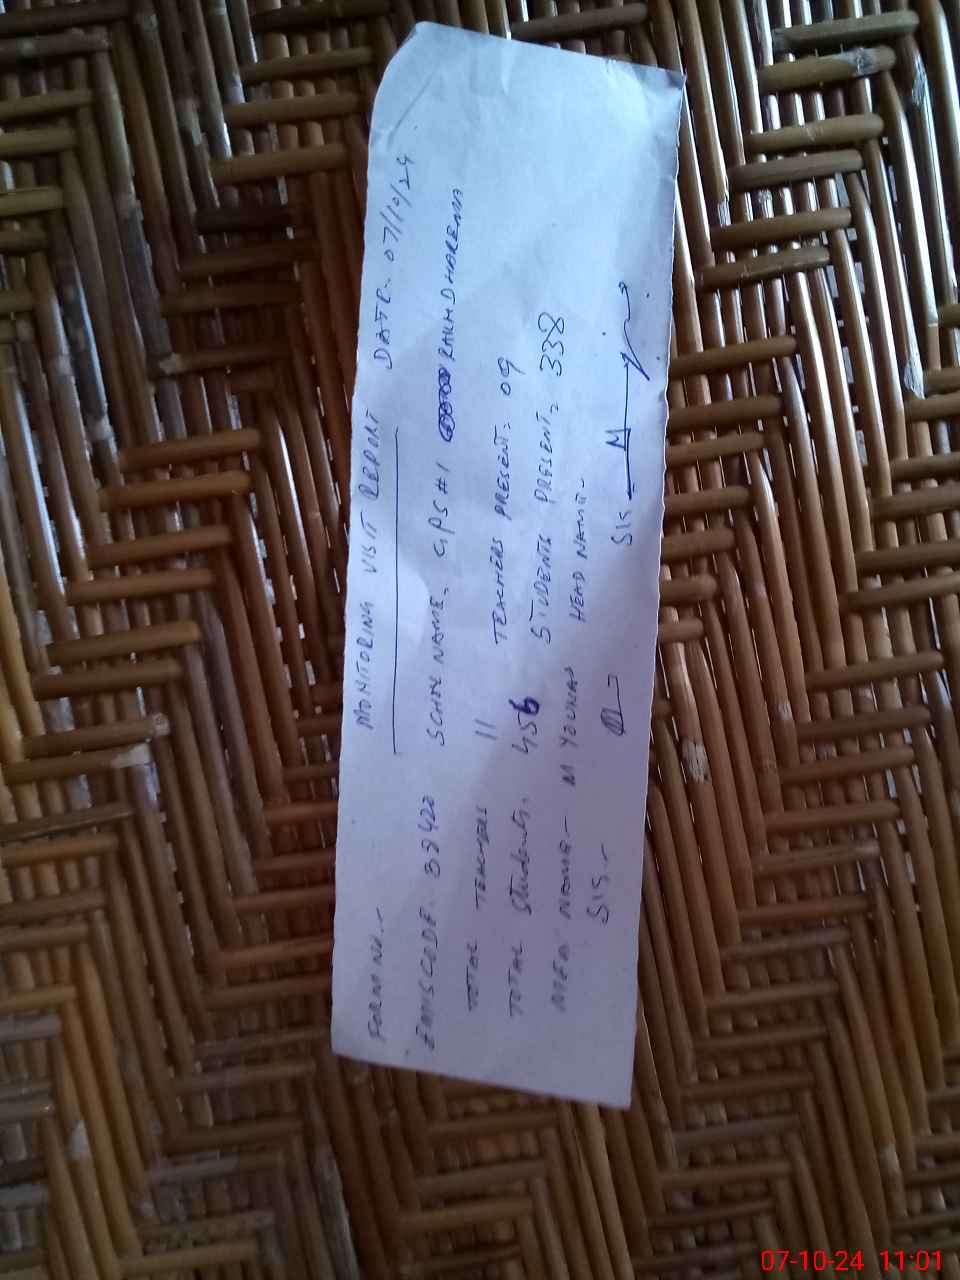 MONITORING VISIT REPORT DATE. 07/10/24
FORM NO.-
EMISCODE. 39422 SCHOOL NAME. GPS #1 RAKH DHAREMA
TOTAL TEACHERS 11 TEACHERS PRESENT. 09
TOTAL Students. 456 STUDENTS PRESENT. 338
NAME- M YOUNAS HEAD NAME-
SIG- SIG
07-10-24 11:01